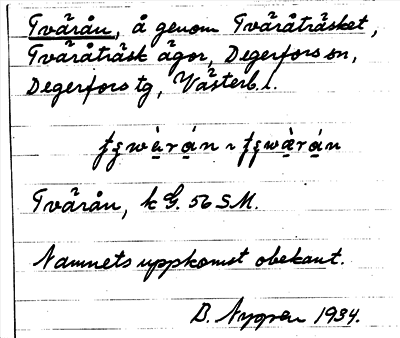 Tvärån, å genom Tväråträsket,
Tväråträsk ägor, Degerfors sn,
Degerfors tg, Västerb. l.
Tvärån, k G. 56 S.M.
Namnets uppkomst obekant.
B. Nygren 1934.